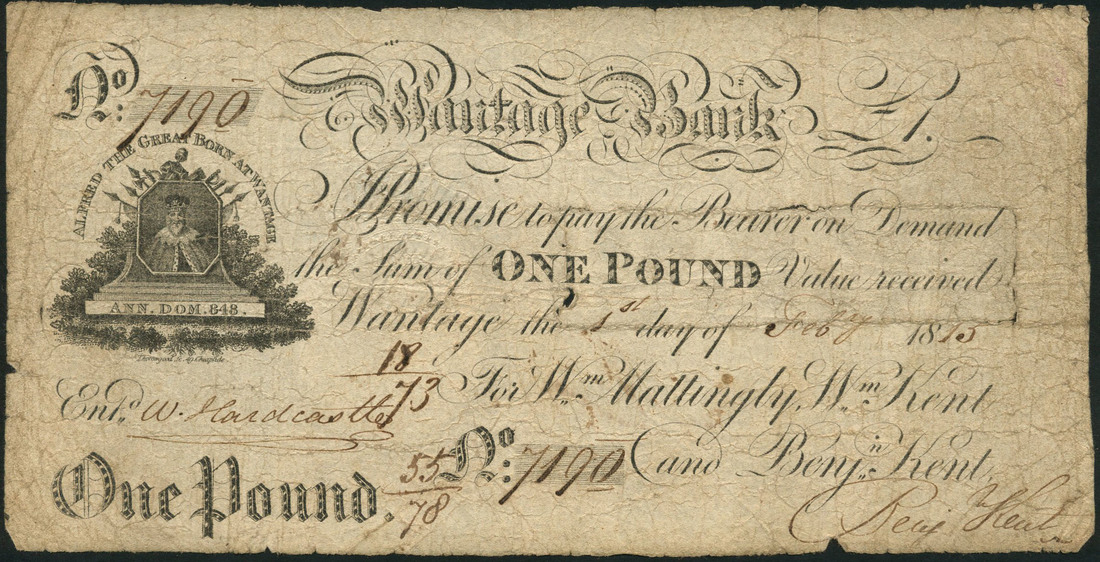 No: 7190
Wantage Bank £1.
ALFRED THE GREAT BORN AT WANTAGE
ANN. DOM. 848.
I Promise to pay the Bearer on Demand
the Sum of ONE POUND Value received
Wantage the 1st day of Feby 1815
18
73
For Wm. Mattingly, Wm. Kent
Entd. W. Hardcastle
and Benjn. Kent.
One Pound.
55
78
No: 7190
Benj Kent